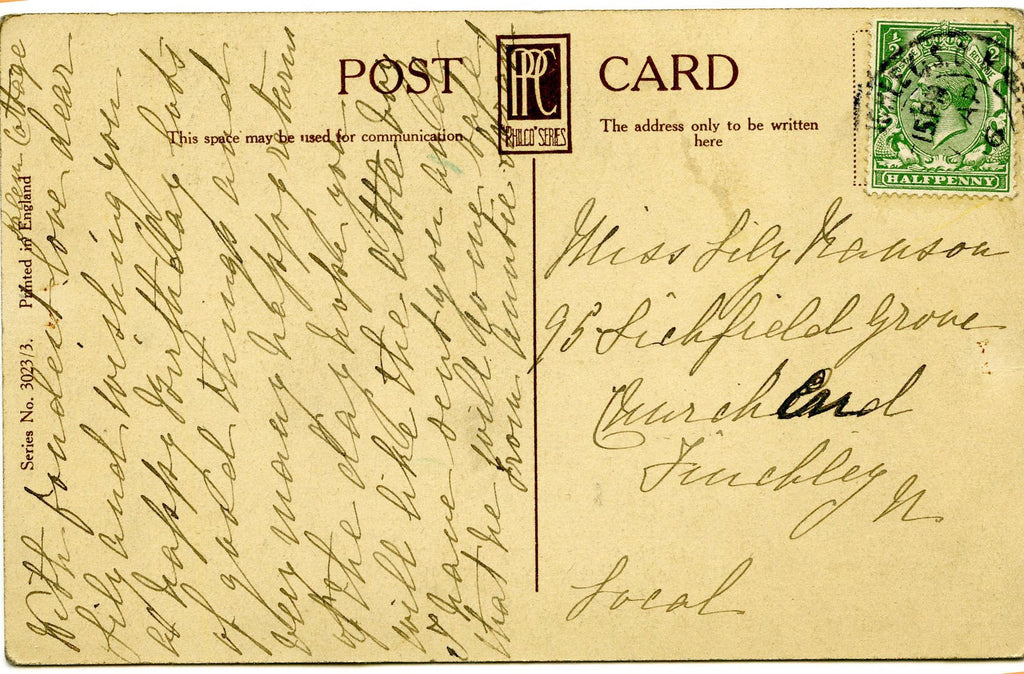 POST CARD
PPC
PHILCO SERIES
This space may be used for communication
The address only to be written
here
Series No. 3023/3. Printed in England
Cottage
With fondest love dear
Lily and wishing you
a happy birthday lots
of good things and
very many happy returns
of the day hope you
will like the little Dog
I have sent you
that he will go
from Auntie
Miss Lily
95 Lichfield Grove
Church End
Finchley
N.
Local
15 AP
HALFPENNY